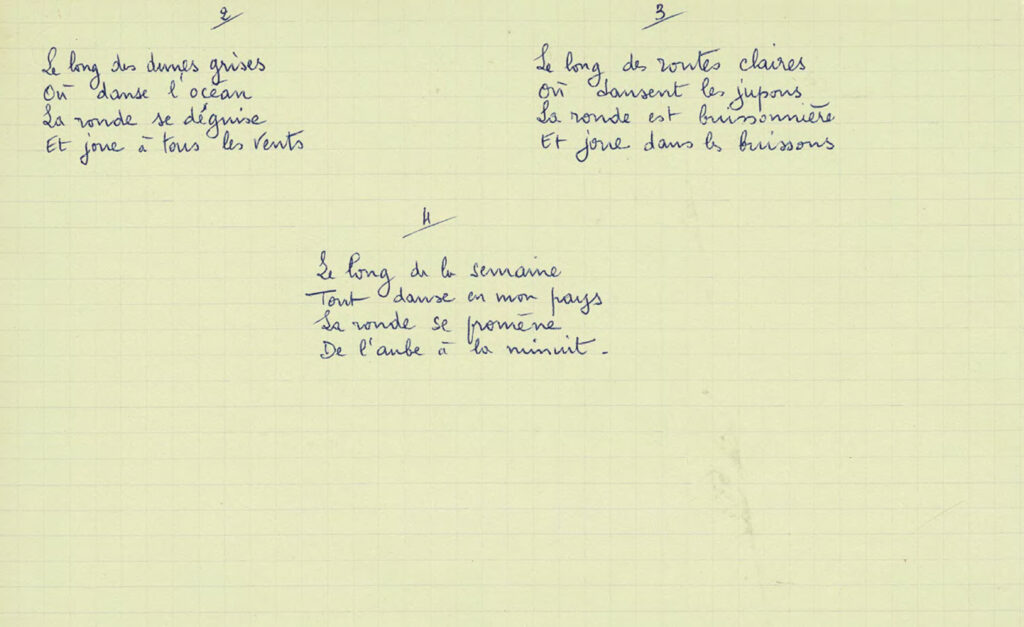 2
Le long des dunes grises
Où danse l'océan
La ronde se déguise
Et joue à tous les vents
3
Le long des routes claires
Où dansent les jupons
La ronde est buissonnière
Et joue dans les buissons
4
Le long de la semaine
Tout danse en mon pays
La ronde se promène
De l'aube à la minuit.